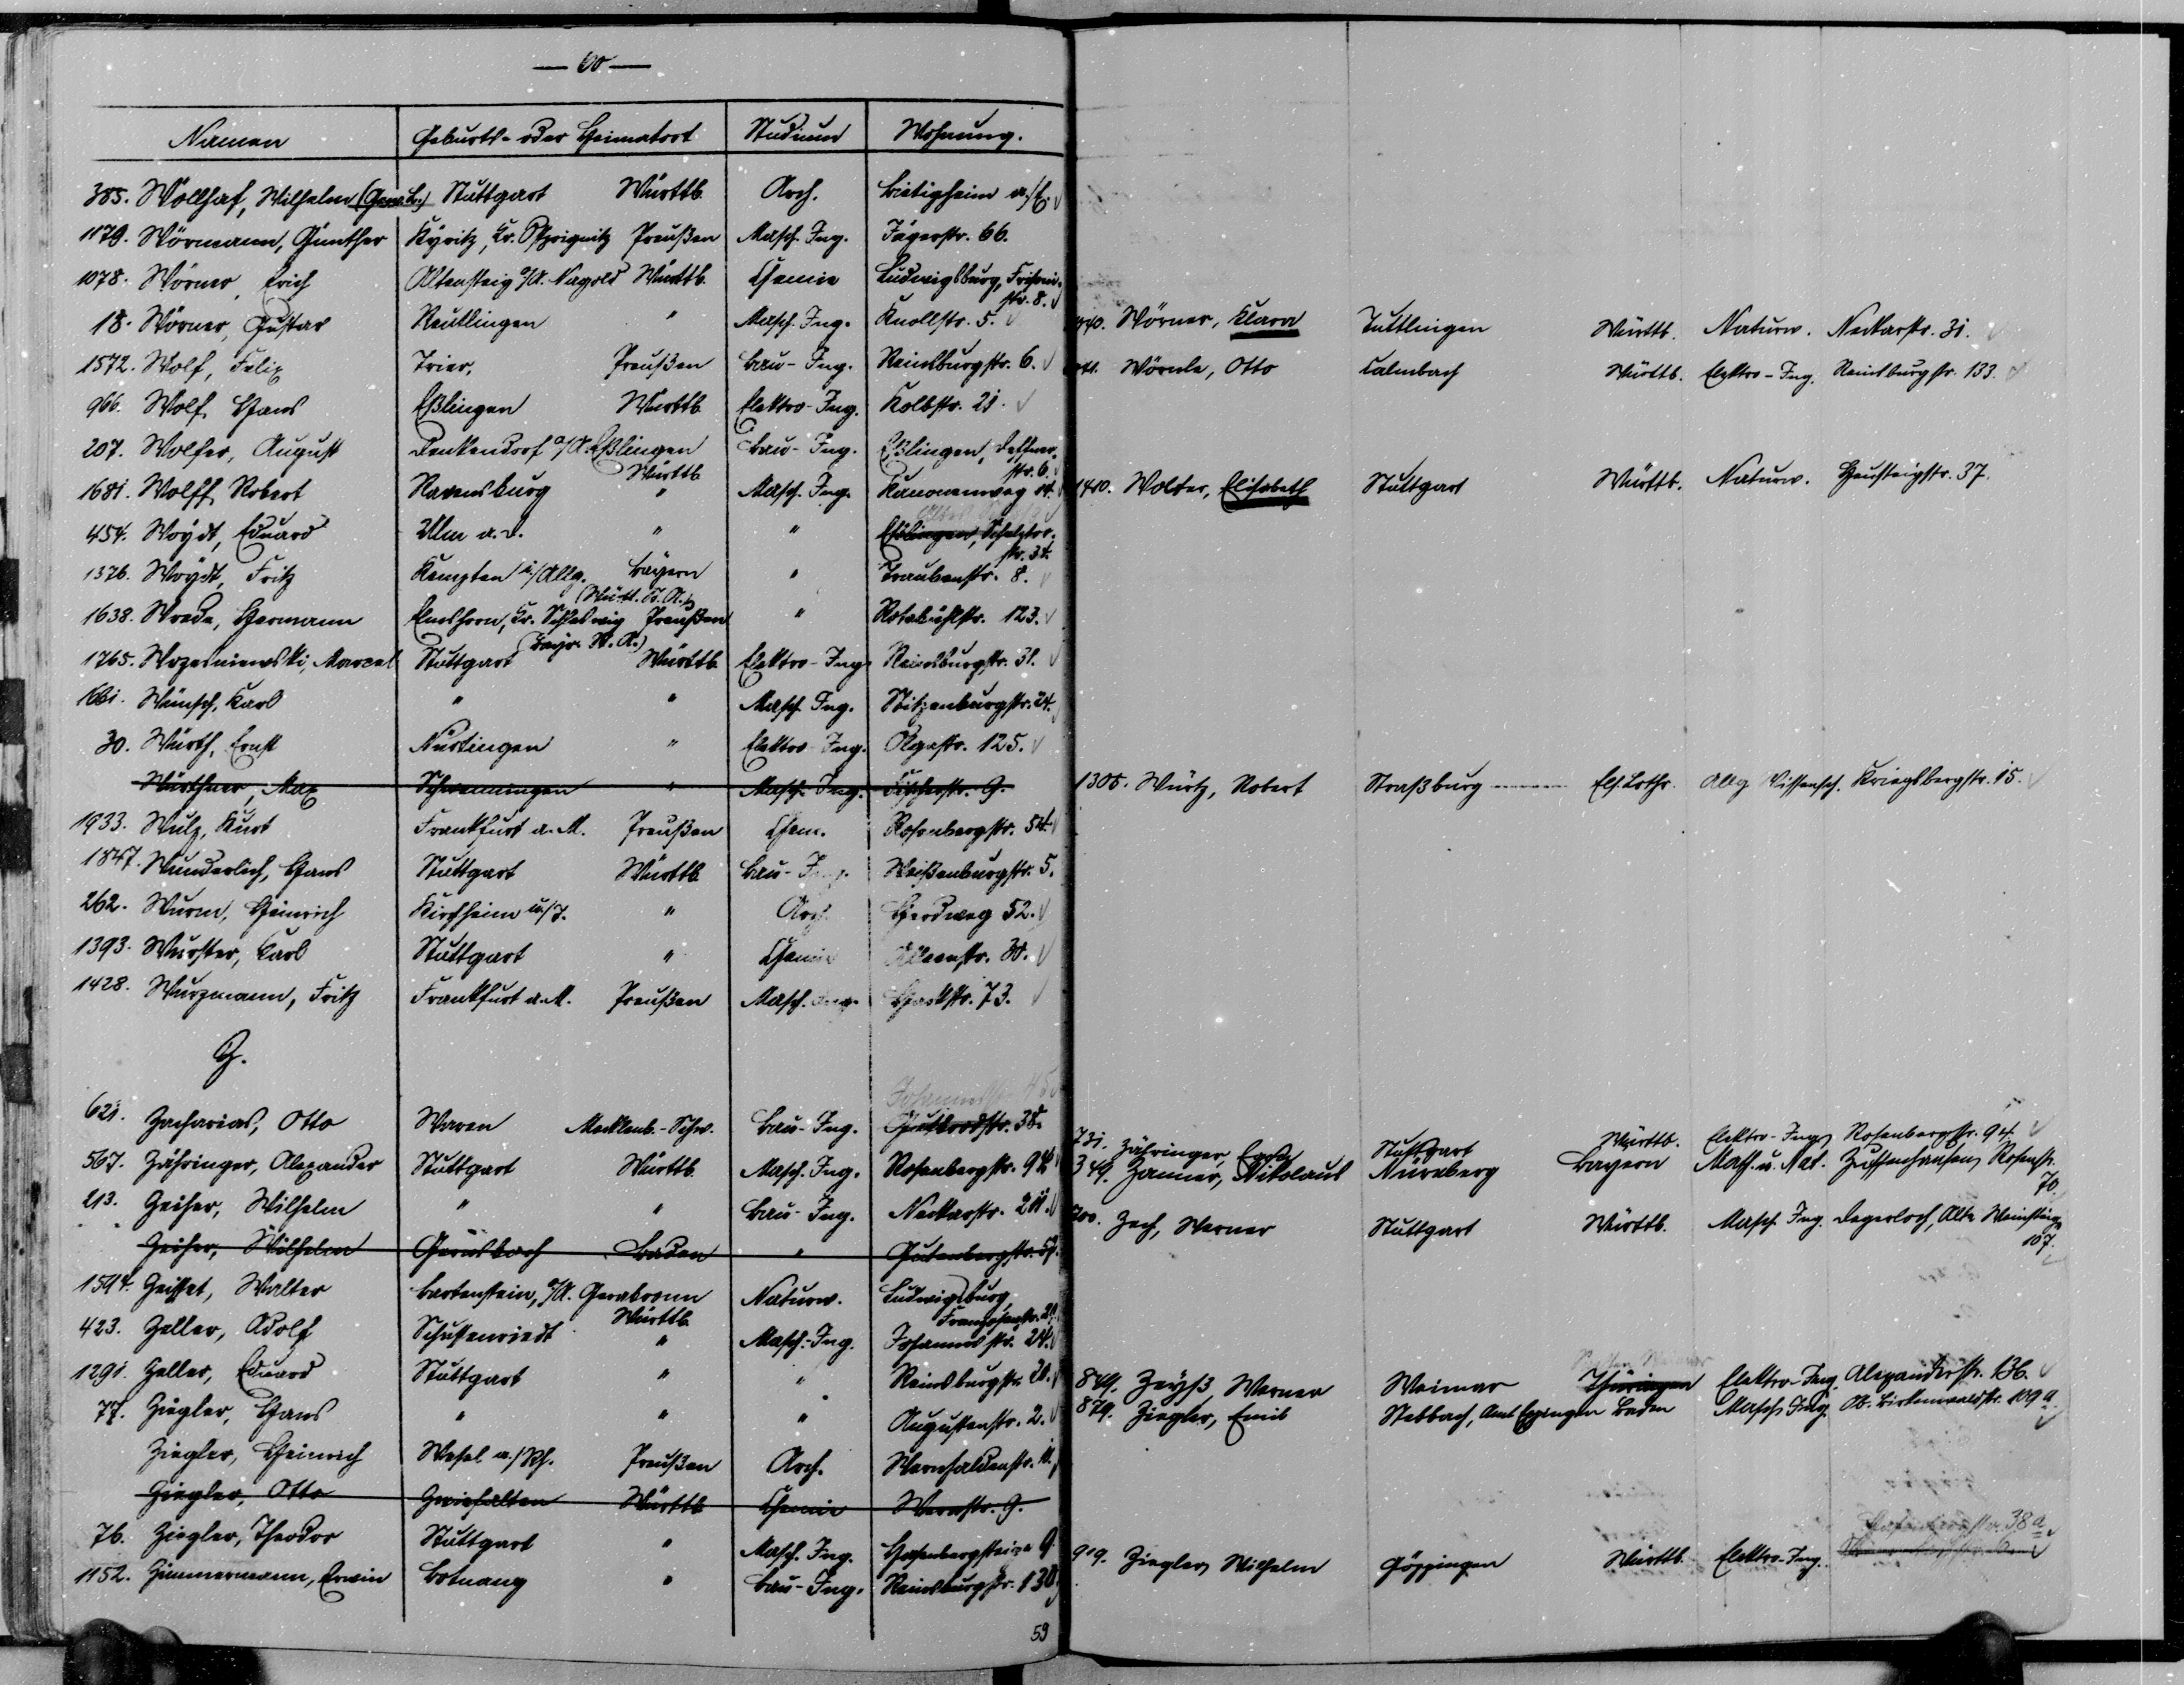 — 60 —
Namen Geburts- oder Heimatort Studium Wohnung.
385. Wöllhaf, Wilhelm Stuttgart Württb. Arch. Bietigheim a./E.
1179. Wörmann, Günther Kyritz, Kr. Ostprignitz Preußen Masch. Ing. Jägerstr. 66.
1078. Wörner, Erich Altensteig O/A. Nagold Württb. Chemie Ludwigsburg,
str. 8.
18. Wörner, Gustav Reutlingen " Masch. Ing. Knollstr. 5.
1572. Wolf, Felix Trier, Preußen Bau-Ing. Reinsburgstr. 6.
966. Wolf, Hans Eßlingen Württb. Elektro-Ing. Kolbstr. 21.
207. Wolfer, August Denkendorf O/A. Eßlingen Bau-Ing. Eßlingen,
Württb. str. 6.
1681. Wolff, Robert Ravensburg " Masch. Ing. Kanonenweg
454. Woydt, Eduard Ulm a.D. " " Eßlingen,
str. 34.
1376. Woydt, Fritz Kempten i./Allg. Bayern " Traubenstr. 8.
(Württ. St. A.)
1638. Wrede, Hermann Elmshorn, Kr. Schleswig Preußen " Rotebühlstr. 123.
(Bayr. St. A.)
1765. Wrzesniewski, Marcel Stuttgart Württb. Elektro-Ing. Reinsburgstr. 31.
1661. Wünsch, Karl " " Masch. Ing. Sitzenburgstr. 24.
30. Würth, Ernst Nürtingen " Elektro-Ing. Olgastr. 125.
Würthner, Max Schwenningen " Masch. Ing. Fischerstr. 9.
1933. Wulz, Kurt Frankfurt a.M. Preußen Chem. Rosenbergstr. 54.
1847. Wunderlich, Hans Stuttgart Württb. Bau-Ing. Weißenburgstr. 5.
262. Wurm, Heinrich Kirchheim u./T. " Arch. Herdweg 52.
1393. Wurster, Karl Stuttgart " Chemie Alleenstr. 30.
1428. Wurzmann, Fritz Frankfurt a.M. Preußen Masch. Ing. Hackstr. 73.
Z.
Johannesstr. 45
621. Zacharias, Otto Waren Mecklenb.-Schw. Bau-Ing. Gutbrodstr. 38.
567. Zähringer, Alexander Stuttgart Württb. Masch. Ing. Rosenbergstr. 94.
213. Zeiher, Wilhelm " " Bau-Ing. Neckarstr.
Zeiher, Wilhelm Gernsbach Baden " Gutenbergstr. 57.
1594. Walter Bartenstein, O/A. Gerabronn Naturw. Ludwigsburg,
Württb.
423. Zeller, Adolf Schussenriedt " Masch.-Ing. Johannesstr. 24.
1291. Zeller, Eduard Stuttgart " " Reinsburgstr. 20.
77. Ziegler, Hans " " " Augustenstr. 2.
Ziegler, Heinrich Wesel a./Rh. Preußen Arch. Wernhaldenstr.
Ziegler, Otto Zwiefalten Württb. Chemie Werastr. 9.
76. Ziegler, Theodor Stuttgart " Masch. Ing. Hasenbergsteige 9.
1152. Zimmermann, Erwin Botnang " Bau-Ing. Reinsburgstr. 130
59
Wörner, Klara Tuttlingen Württb. Naturw. Neckarstr. 31.
Wörnle, Otto Calmbach Württb. Elektro-Ing. Reinsburgstr. 133.
1410. Wolter, Elisabeth Stuttgart Württb. Naturw. Heusteigstr. 37.
1305. Würtz, Robert Straßburg Els. Lothr. Allg. Wissensch. Kriegsbergstr. 15.
731. Zähringer, Stuttgart Württb. Elektro-Ing. Rosenbergstr. 94.
349. Zanner, Nikolaus Nürnberg Bayern Math. u. Nat. Zuffenhausen, Rosenstr.
70.
Zech, Werner Stuttgart Württb. Masch. Ing. Degerloch, Alte Weinsteige
107.
849. Zeyß, Werner Weimar Thüringen Elektro-Ing. Alexanderstr. 136.
879. Ziegler, Emil Stebbach, Amt Eppingen Baden Masch. Ing. Ob. Birkenwaldstr. 109 a.
38 a.
919. Ziegler, Wilhelm Göppingen Württb. Elektro-Ing.